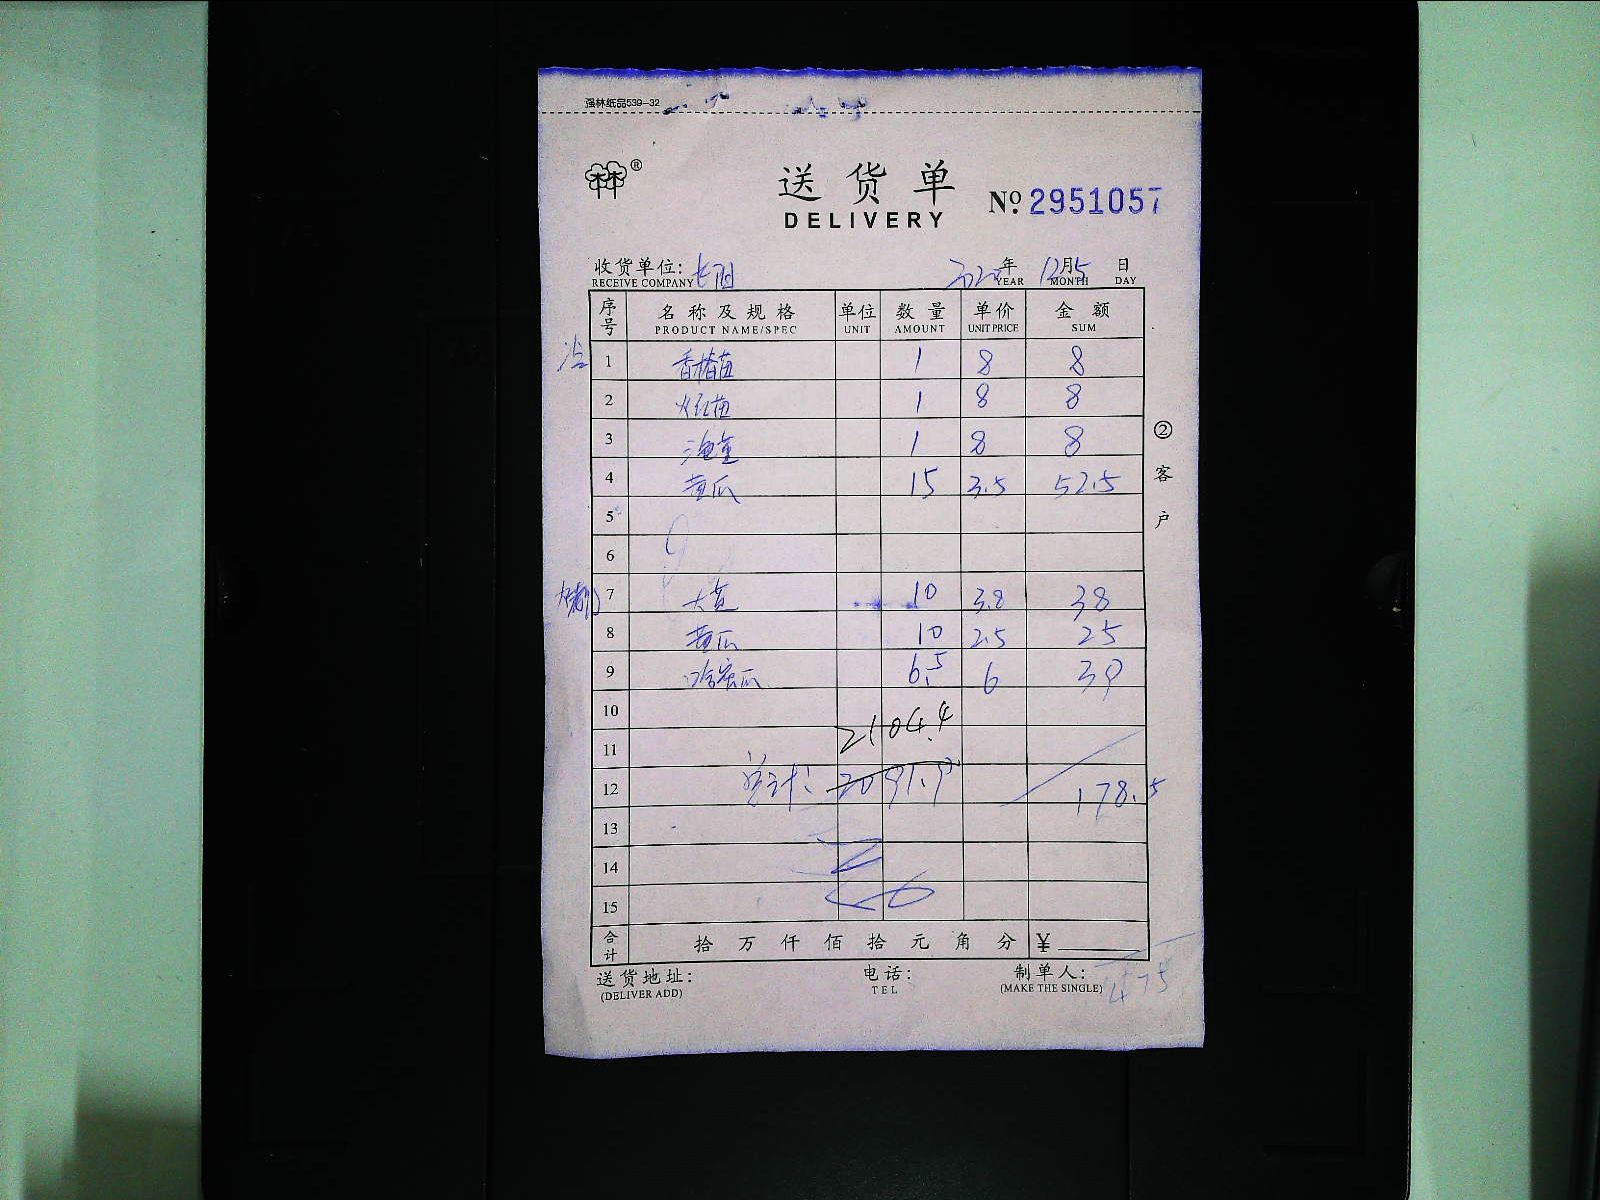 强林纸品539-32
林®
送货单
DELIVERY
№ 2951057
收货单位: 2020年 12月5日
RECEIVE COMPANY YEAR MONTH DAY
序号 名称及规格 单位 数量 单价 金额
PRODUCT NAME/SPEC UNIT AMOUNT UNIT PRICE SUM
1 香椿苗 1 8 8
2 苗 1 8 8
3 1 8 8
4 黄瓜 15 3.5 52.5
5
6
7 10 3.8 38
8 黄瓜 10 2.5 25
9 哈密瓜 6.5 6 39
10
11 2104.4
12 总计: 2091.9 178.5
13
14
15
合计 拾 万 仟 佰 拾 元 角 分 ¥
送货地址: 电话: 制单人:
(DELIVER ADD) TEL (MAKE THE SINGLE) 475
②客户